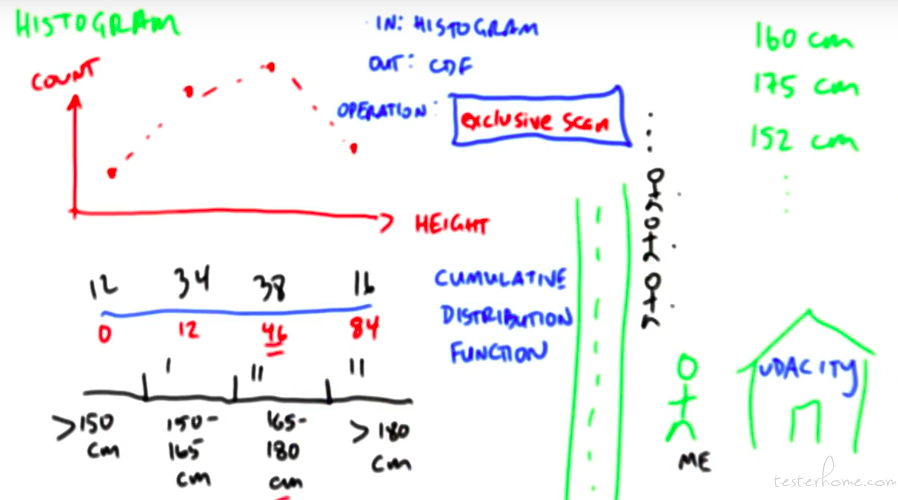 HISTOGRAM
COUNT
HEIGHT
IN: HISTOGRAM
OUT: CDF
OPERATION:
exclusive scan
160 cm
175 cm
152 cm
12 34 38 16
0 12 46 84
CUMULATIVE
DISTRIBUTION
FUNCTION
>150 cm
150-165 cm
165-180 cm
>180 cm
UDACITY
ME
testerhome.com